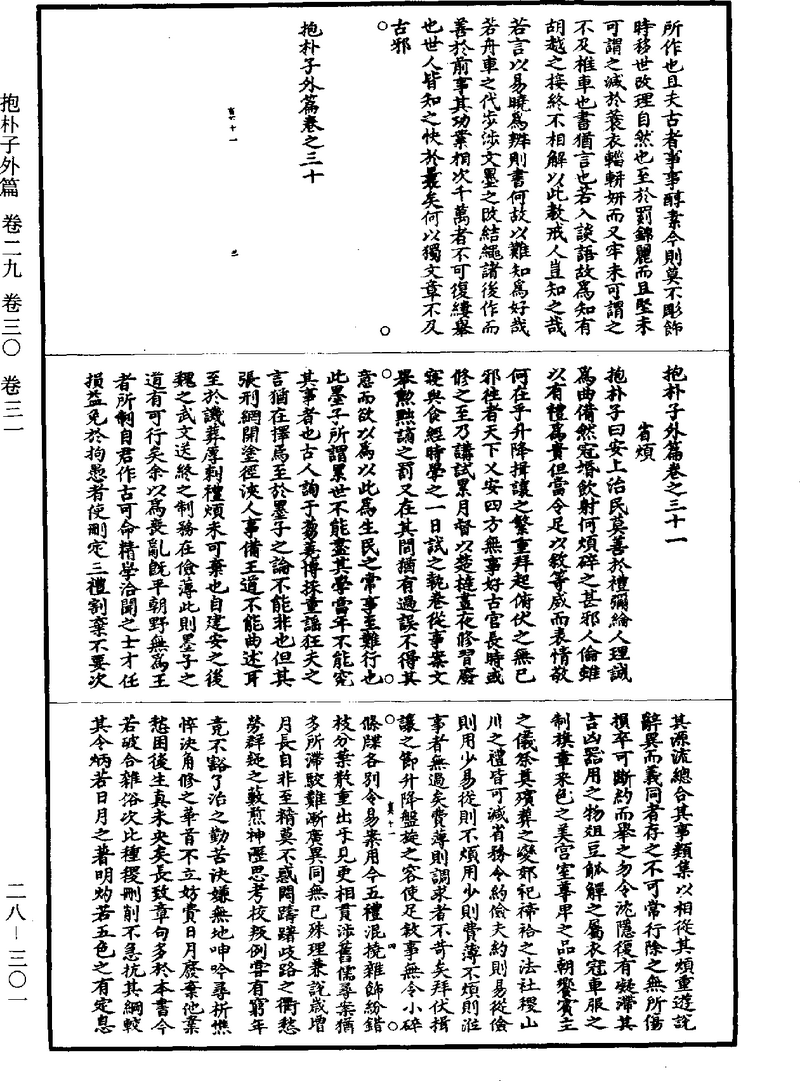 所作也且夫古者事事醇素今則莫不彫飾
時移世改理自然也至於罽錦麗而且堅未
可謂之減於蓑衣輜軿妍而又牢未可謂之
不及椎車也書猶言也若入談語故爲知有
胡越之接終不相解以此教戒人豈知之哉
若言以易曉爲辨則書何故以難知爲好哉
若舟車之代步涉文墨之改結繩諸後作而
善於前事其功業相次千萬者不可復縷舉
也世人皆知之快於曩矣何以獨文章不及
古邪
抱朴子外篇卷之三十
抱朴子外篇卷之三十一
省煩
抱朴子曰安上治民莫善於禮彌綸人理誠
爲曲備然冠婚飲射何煩碎之甚邪人倫雖
以有禮爲貴但當令足以敘等威而表情敬
何在乎升降揖讓之繁重拜起俯伏之無已
邪往者天下乂安四方無事好古官長時或
修之至乃講試累月督以楚撻晝夜修習廢
寢與食經時學之一日試之執卷從事案文
舉動黜謫之罰又在其間猶有過誤不得其
意而欲以爲以此爲生民之常事至難行也
此墨子所謂累世不能盡其學當年不能究
其事者也古人詢于芻蕘博採童謠狂夫之
言猶在擇焉至於墨子之論不能非也但其
張刑網開塗徑浹人事備王道不能曲述耳
至於譏葬厚刺禮煩未可棄也自建安之後
魏之武文送終之制務在儉薄此則墨子之
道有可行矣余以爲喪亂既平朝野無爲王
者所制自君作古可命精學洽聞之士才任
損益免於拘愚者使刪定三禮割棄不要次
其源流總合其事類集以相從其煩重遊說
辭異而義同者存之不可常行除之無所傷
損卒可斷約而舉之勿令沈隱復有凝滯其
言凶器用之物俎豆觚觶之屬衣冠車服之
制旗章采色之美宮室尊卑之品朝饗賓主
之儀祭奠殯葬之變郊祀禘祫之法社稷山
川之禮皆可減省務令約儉夫約則易從儉
則用少易從則不煩用少則費薄不煩則涖
事者無過矣費薄則調求者不苛矣拜伏揖
讓之節升降盤旋之容使足敘事無令小碎
條牒各別令易案用今五禮混撓雜飾紛錯
枝分葉散重出乎見更相貫涉舊儒尋案猶
多所滯駮難漸廣異同無已殊理兼說歲增
月長自非至精莫不惑悶躊躇歧路之衢愁
勞群疑之藪煎神瀝思考校叛例嘗有窮年
竟不豁了治之勤苦決嫌無地呻吟尋析憔
悴決角修之華首不立妨費日月廢棄他業
愁困後生真未央矣長致章句多於本書今
若破合雜俗次比種稷刪削不急抗其綱較
其令炳若日月之著明灼若五色之有定息
抱朴子外篇 卷二九 卷三〇 卷三一
二八－三〇一